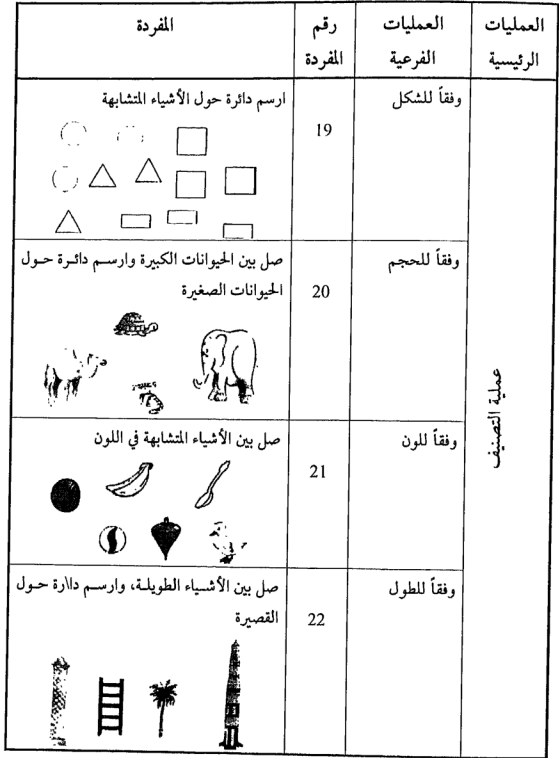 العمليات الرئيسية
العمليات الفرعية
رقم المفردة
المفردة
عملية التصنيف
وفقاً للشكل
19
ارسم دائرة حول الأشياء المتشابهة
وفقاً للحجم
20
صل بين الحيوانات الكبيرة وارسم دائرة حول
الحيوانات الصغيرة
وفقاً للون
21
صل بين الأشياء المتشابهة في اللون
وفقاً للطول
22
صل بين الأشياء الطويلة، وارسم دالارة حول
القصيرة